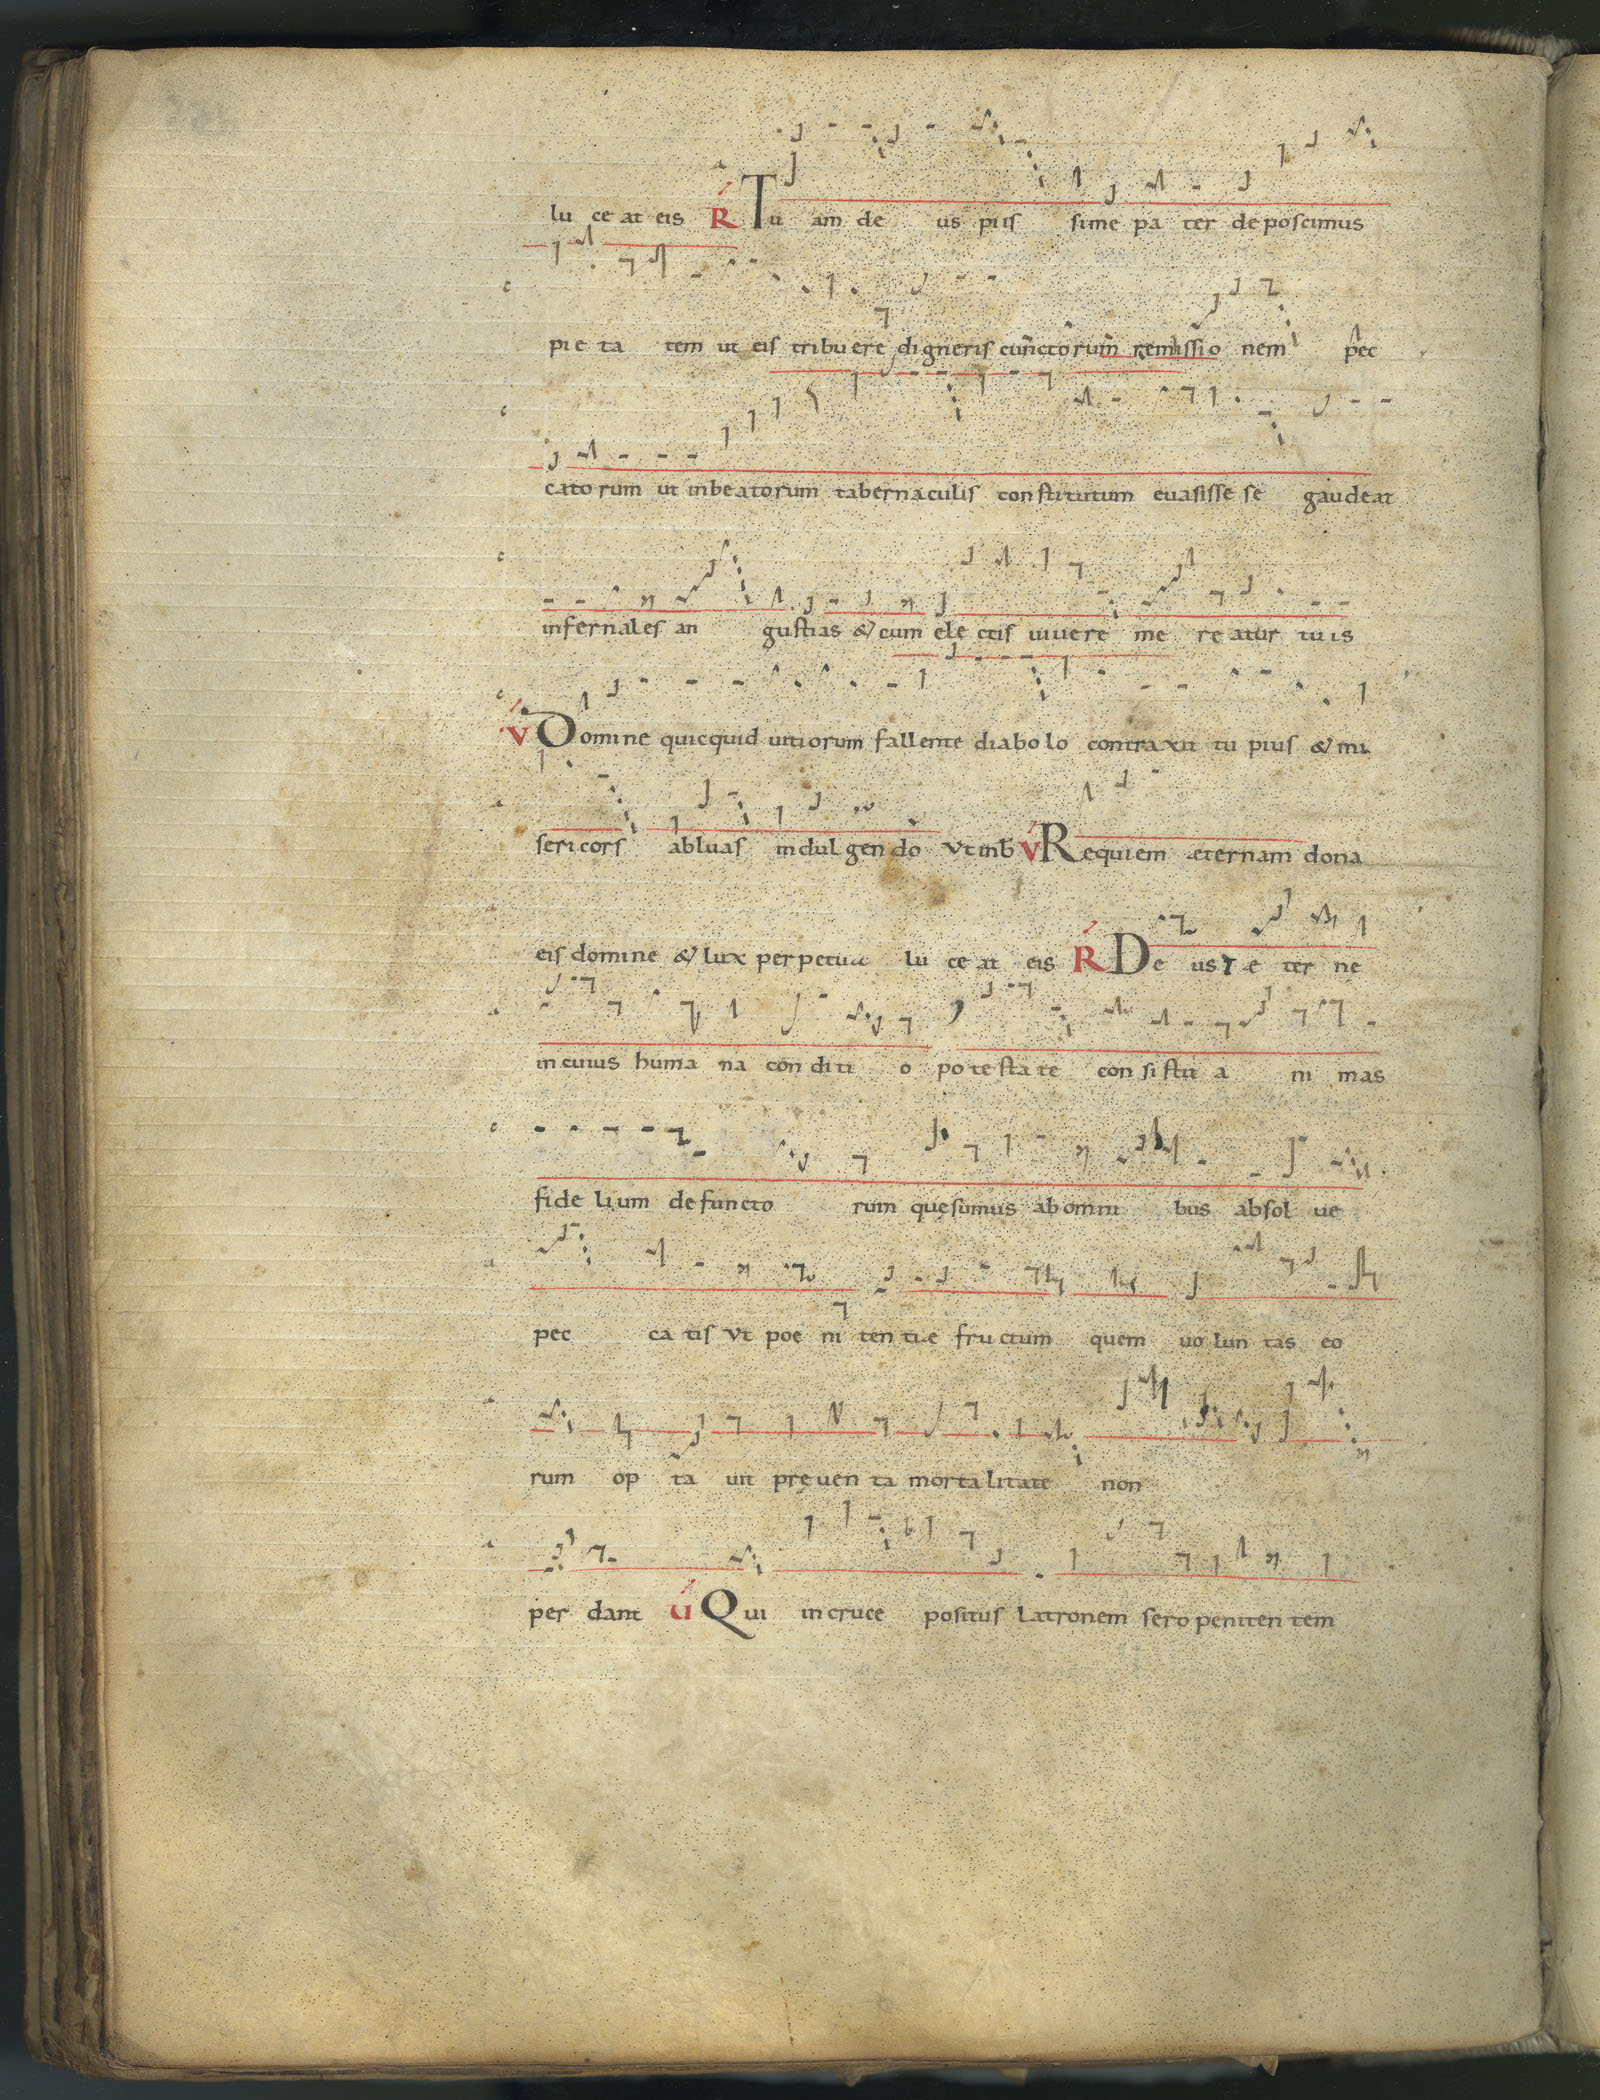 lu ce at eis R Tu am de us piis sime pa ter de poscimus
pie ta tem ut eis tribuere digneris cunctorum remissio nem pec
catorum ut inbeatorum tabernaculis constitutum euasisse se gaudeat
infernales an gustias & cum ele ctis uiuere me re atur tuis
V Domine quicquid uitiorum fallente diabolo contraxit tu pius & mi
sericors abluas indulgendo Vt inb V Requiem æternam dona
eis domine & lux perpetua lu ce at eis R De us e ter ne
in cuius huma na con diti o potestate consistit a ni mas
fide lium defuncto rum quęsumus ab omni bus absol ue
pec ca tis Vt poe ni ten tiæ fructum quem uo lun tas eo
rum op ta uit pręuen ta mortalitate non
per dant U Qui in cruce positus Latronem sero peniten tem